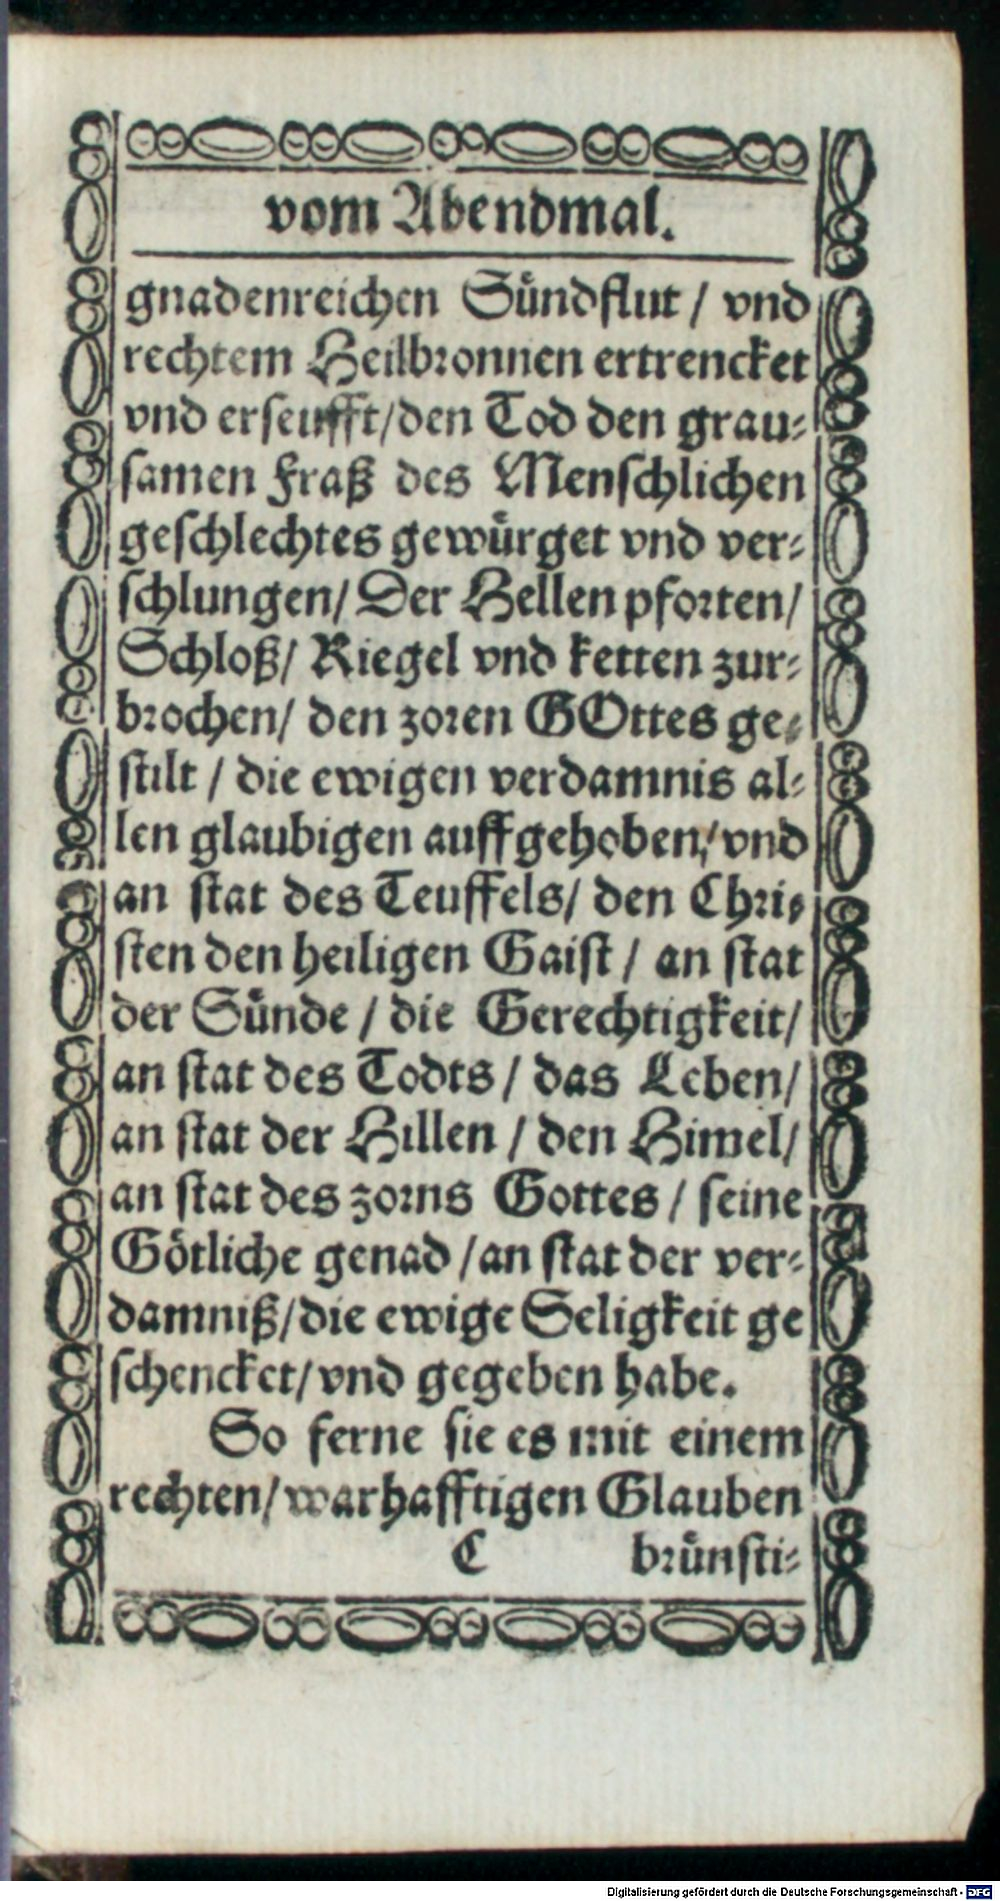 vom Abendmal.
gnadenreichen Sündflut / vnd
rechtem Heilbronnen ertrencket
vnd erseufft/den Tod den grau-
samen Fraß des Menschlichen
geschlechtes gewürget vnd ver-
schlungen/ Der Hellen pforten/
Schloß/ Riegel vnd ketten zur-
brochen/ den zoren GOttes ge-
stilt / die ewigen verdamnis al-
len glaubigen auffgehoben/ vnd
an stat des Teuffels/ den Chri-
sten den heiligen Gaist / an stat
der Sünde / die Gerechtigkeit/
an stat des Todts / das Leben/
an stat der Hillen / den Himel/
an stat des zorns Gottes / seine
Götliche genad /an stat der ver-
damniß/die ewige Seligkeit ge
schencket/vnd gegeben habe.
So ferne sie es mit einem
rechten/ warhafftigen Glauben
C brünsti-
Digitalisierung gefördert durch die Deutsche Forschungsgemeinschaft - DFG